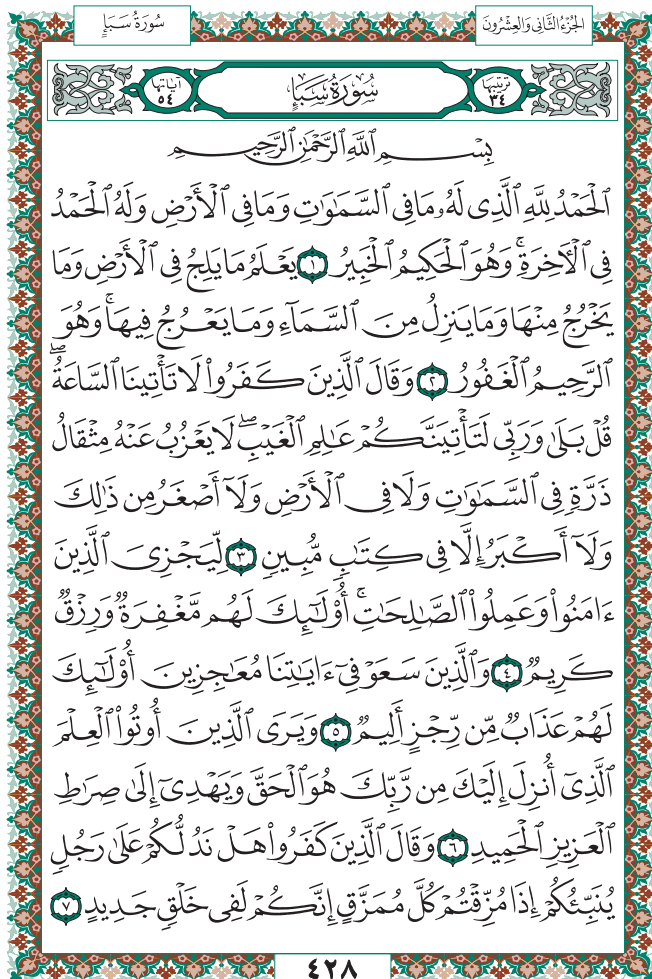 سُورَةُ سَبَإٍ
الجُزْءُ الثَّانِي وَالعِشْرُونَ
تَرتِيبُهَا ٣٤
سُورَةُ سَبَإٍ
آيَاتُهَا ٥٤
بِسْمِ ٱللَّهِ ٱلرَّحْمَٰنِ ٱلرَّحِيمِ
ٱلْحَمْدُ لِلَّهِ ٱلَّذِى لَهُۥ مَا فِى ٱلسَّمَٰوَٰتِ وَمَا فِى ٱلْأَرْضِ وَلَهُ ٱلْحَمْدُ
فِى ٱلْأَخِرَةِ ۚ وَهُوَ ٱلْحَكِيمُ ٱلْخَبِيرُ ١ يَعْلَمُ مَا يَلِجُ فِى ٱلْأَرْضِ وَمَا
يَخْرُجُ مِنْهَا وَمَا يَنزِلُ مِنَ ٱلسَّمَآءِ وَمَا يَعْرُجُ فِيهَا ۚ وَهُوَ
ٱلرَّحِيمُ ٱلْغَفُورُ ٢ وَقَالَ ٱلَّذِينَ كَفَرُوا۟ لَا تَأْتِينَا ٱلسَّاعَةُ ۖ
قُلْ بَلَىٰ وَرَبِّى لَتَأْتِيَنَّكُمْ عَٰلِمِ ٱلْغَيْبِ ۖ لَا يَعْزُبُ عَنْهُ مِثْقَالُ
ذَرَّةٍ فِى ٱلسَّمَٰوَٰتِ وَلَا فِى ٱلْأَرْضِ وَلَآ أَصْغَرُ مِن ذَٰلِكَ
وَلَآ أَكْبَرُ إِلَّا فِى كِتَٰبٍ مُّبِينٍ ٣ لِّيَجْزِىَ ٱلَّذِينَ
ءَامَنُوا۟ وَعَمِلُوا۟ ٱلصَّٰلِحَٰتِ ۚ أُو۟لَٰٓئِكَ لَهُم مَّغْفِرَةٌ وَرِزْقٌ
كَرِيمٌ ٤ وَٱلَّذِينَ سَعَوْ فِىٓ ءَايَٰتِنَا مُعَٰجِزِينَ أُو۟لَٰٓئِكَ
لَهُمْ عَذَابٌ مِّن رِّجْزٍ أَلِيمٌ ٥ وَيَرَى ٱلَّذِينَ أُوتُوا۟ ٱلْعِلْمَ
ٱلَّذِىٓ أُنزِلَ إِلَيْكَ مِن رَّبِّكَ هُوَ ٱلْحَقَّ وَيَهْدِىٓ إِلَىٰ صِرَٰطِ
ٱلْعَزِيزِ ٱلْحَمِيدِ ٦ وَقَالَ ٱلَّذِينَ كَفَرُوا۟ هَلْ نَدُلُّكُمْ عَلَىٰ رَجُلٍ
يُنَبِّئُكُمْ إِذَا مُزِّقْتُمْ كُلَّ مُمَزَّقٍ إِنَّكُمْ لَفِى خَلْقٍ جَدِيدٍ ٧
٤٢٨